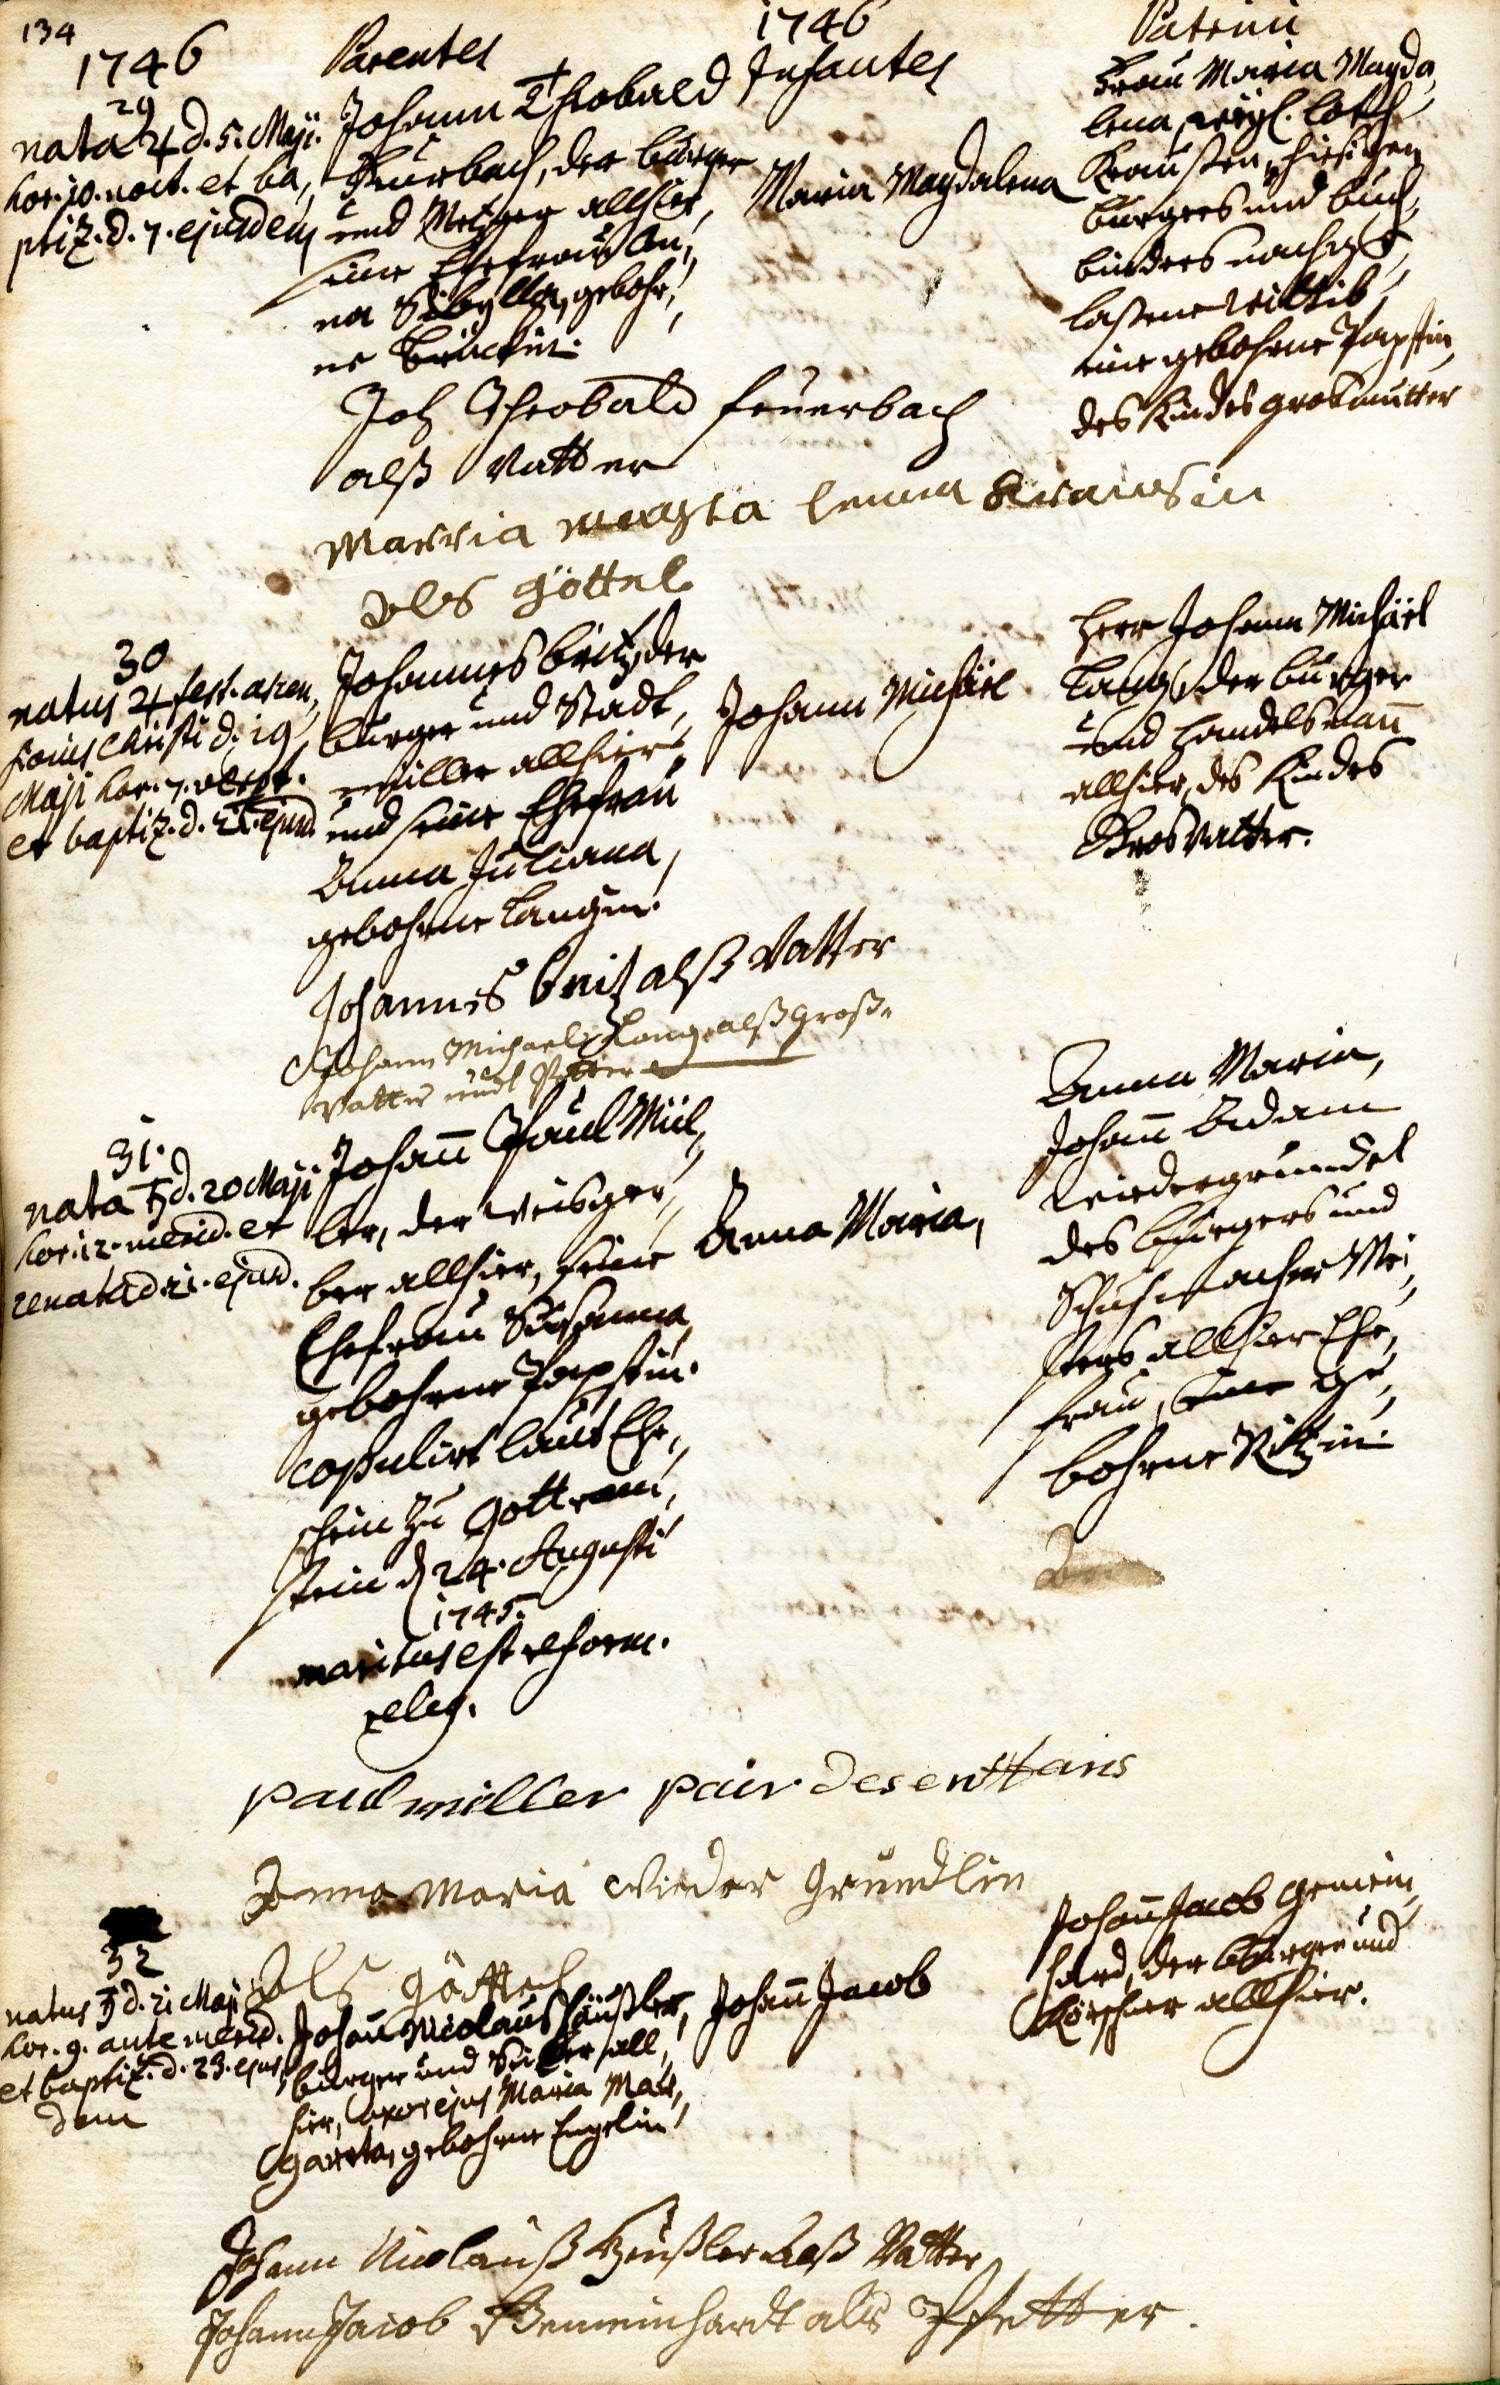 134
1746
Parentes
1746
Infantes
Patrini
29
nata ♃ d. 5. Maji.
hor. 10. noct. et ba,
ptiz. d. 7. ejusdem
Johann Theobald
Feurbach, der burger
und Metzger allhier,
seine Ehefrau An,
na Sibylla, gebohr,
ne Brückin.
Maria Magdalena
Frau Maria Magda,
lena, weyl.
Kraussen, hiesigen
burgers und buch,
binders nachge,
lassene Wittib,
eine gebohrne Papstin,
des Kindes grosmutter
Joh Theobald feuerbach
alss Vatter
Marria magta lenna Krausin
als göttel
30
natus ♃ fest. ascen,
sionis Christi d. 19
Maji hor. 7. vesp.
et baptiz. d. 21. ejusd.
Johannes britz, der
burger und Stadt,
müller allhier,
und seine Ehefrau
Anna Juliana,
gebohrne Langin.
Johann Michäel
Herr Johann Michäel
Lang, der burger
und handelsmañ
allhier, des Kindes
Grosvatter.
Johannes britz alss Vatter
Johann Michael Lang alss Gross-
vatter undt Petter
31.
nata ♄ d. 20 Maji
hor. 12. merid. et
renata d. 21. ejusd.
Johañ Paul Mül,
ler, der Weisger,
ber allhier, seine
Ehefrau Susanna
gebohrne Papstin.
copulirt laut Ehe,
schein zu Gottram,
stein d. 24. Augusti
1745.
maritus est reform.
relig.
Anna Maria,
Anna Maria,
Johañ Adam
Wiedergrundel
des burgers und
Schuhmacher Mei,
sters allhier Ehe,
frau, eine ge,
bohrne Ritzin.
paul müller pair des enttans
Anna Maria Wieder Gründlin
Als göttel
32
natus ♄ d. 21 Maji
hor. 9. ante merid.
et baptiz. d. 23. ejus,
dem
Johañ Nicolaus Häussler,
burger und Seiler all,
hier, uxor ejus Maria Mar,
gareta, gebohrne Engelin
Johañ Jacob
Johañ Jacob Gemein,
hard, der burger und
Kürschner allhier.
Johann Nicolauss Heussler Alss Vatter
Johann Jacob Gemeinhardt als Pfetter.